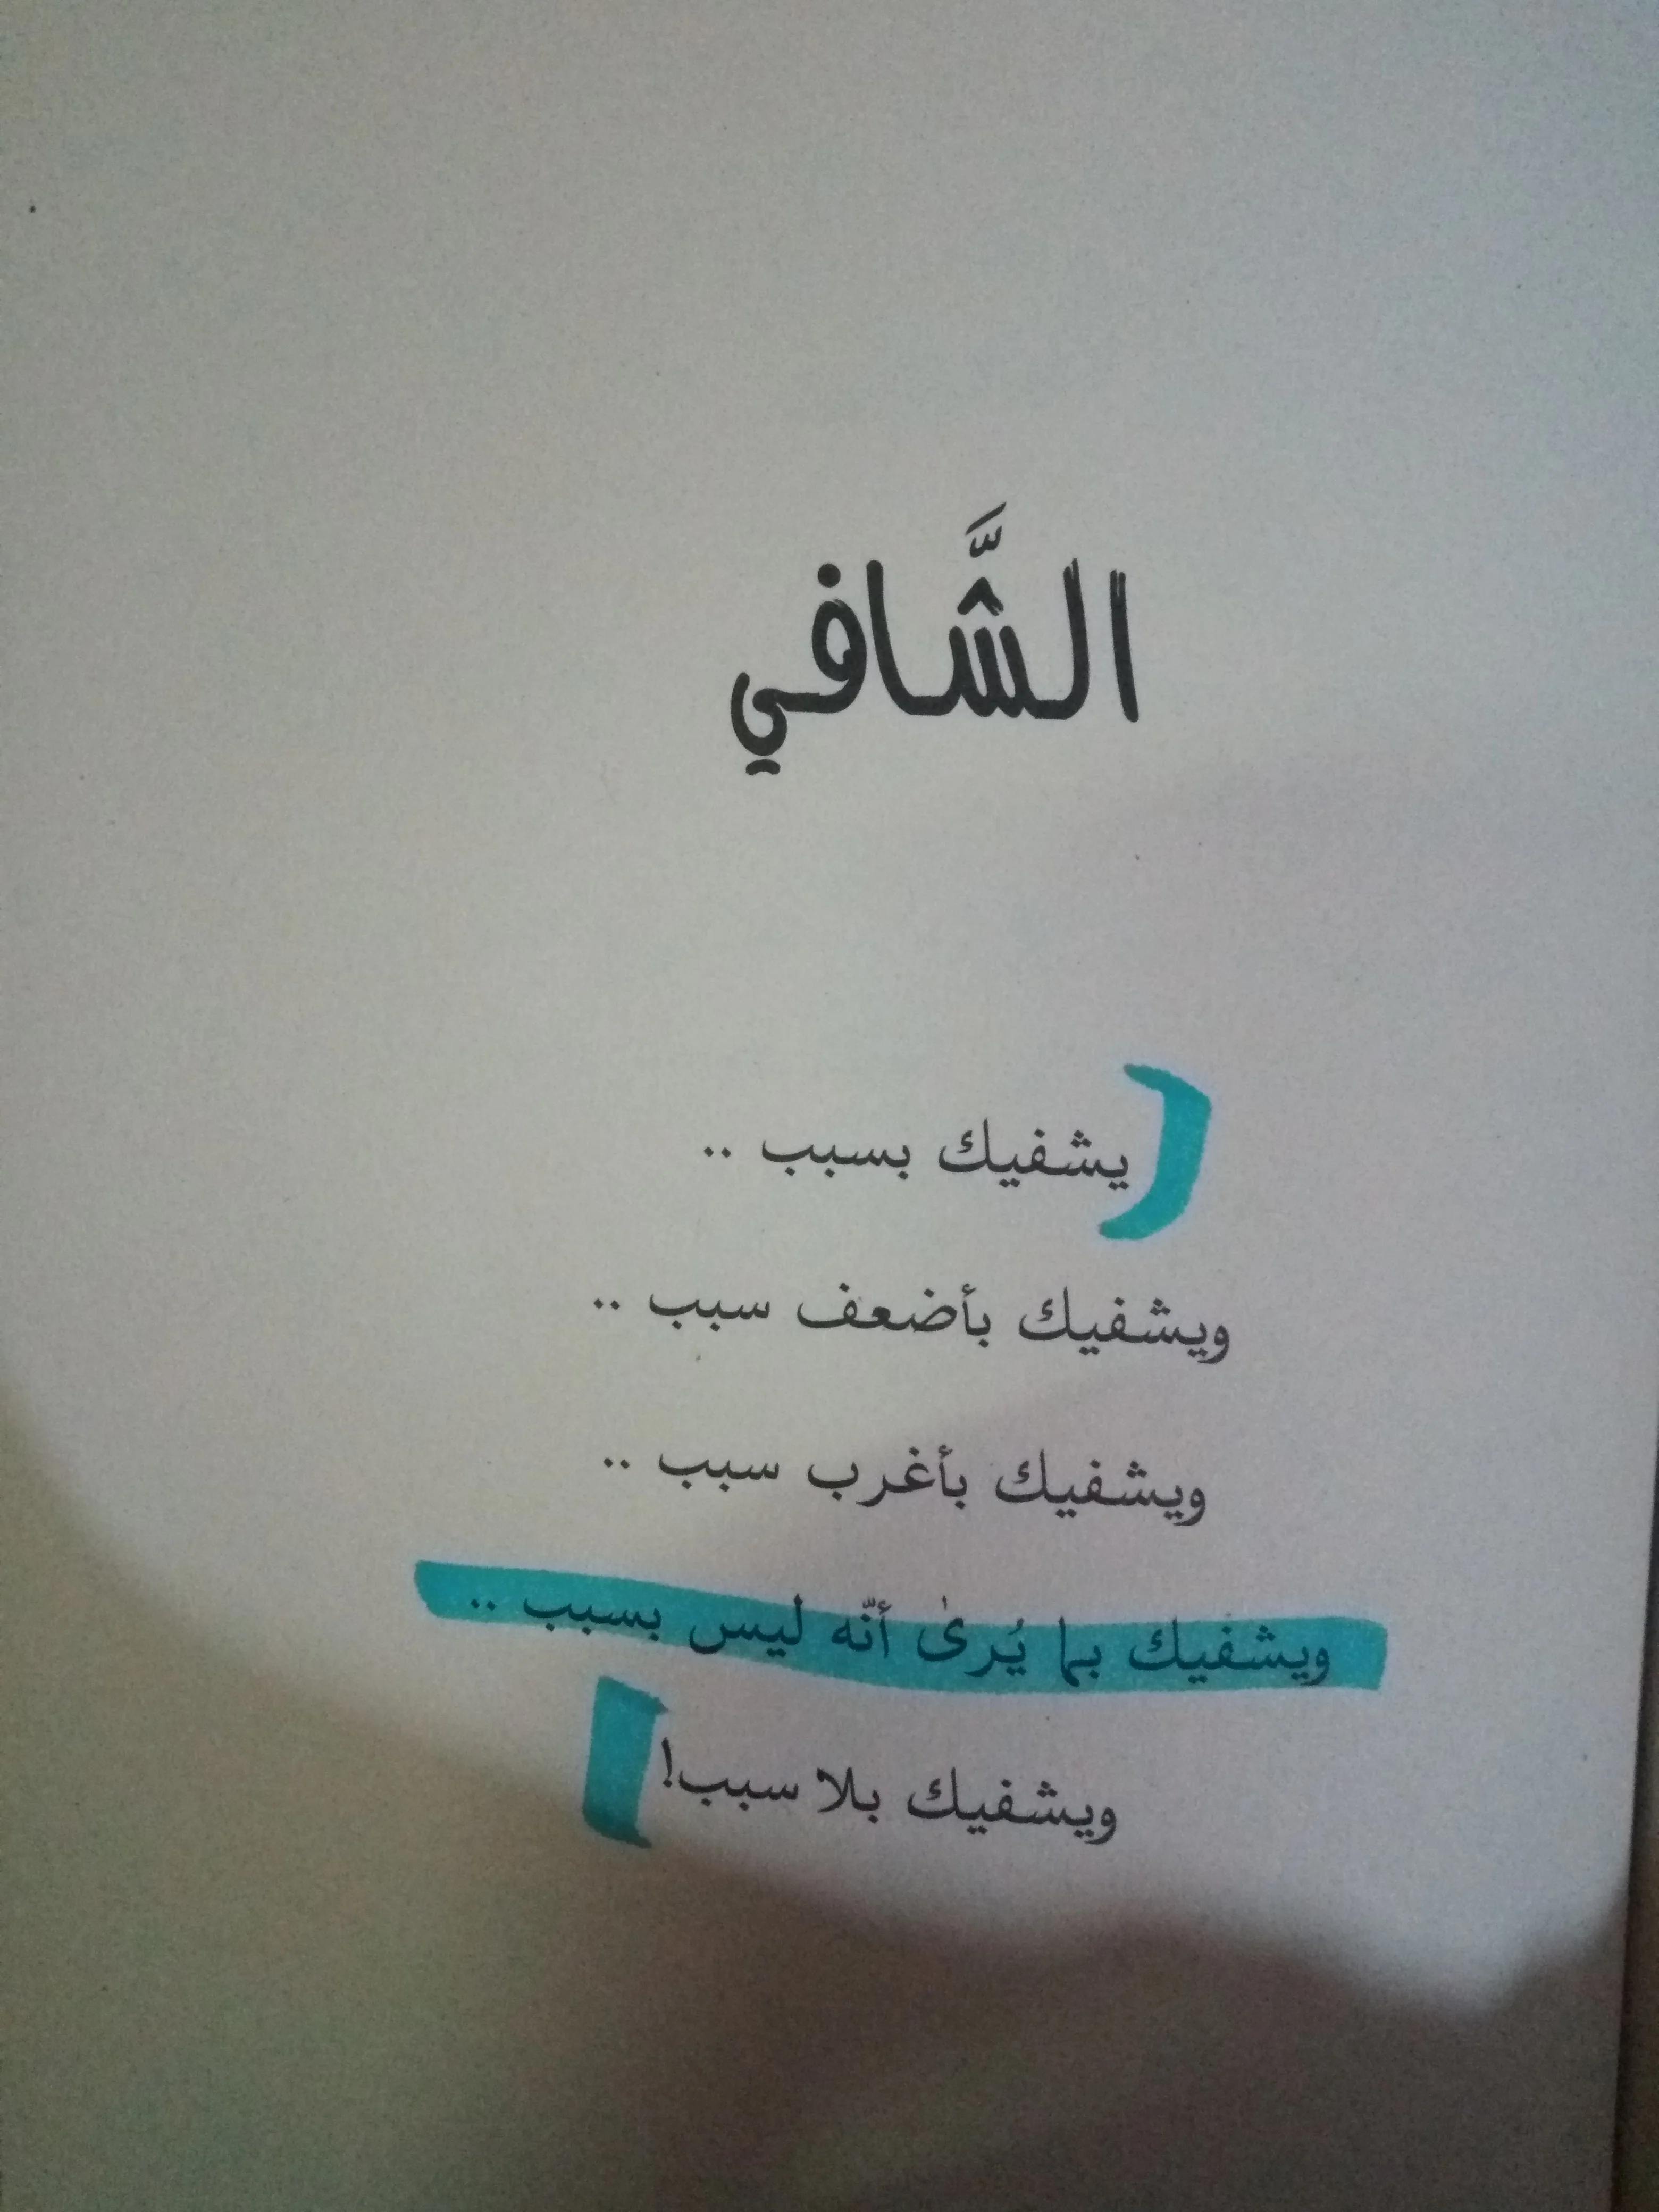 الشَّافي
يشفيك بسبب ..
ويشفيك بأضعف سبب ..
ويشفيك بأغرب سبب ..
ويشفيك بما يُرىٰ أنّه ليس بسبب ..
ويشفيك بلا سبب!